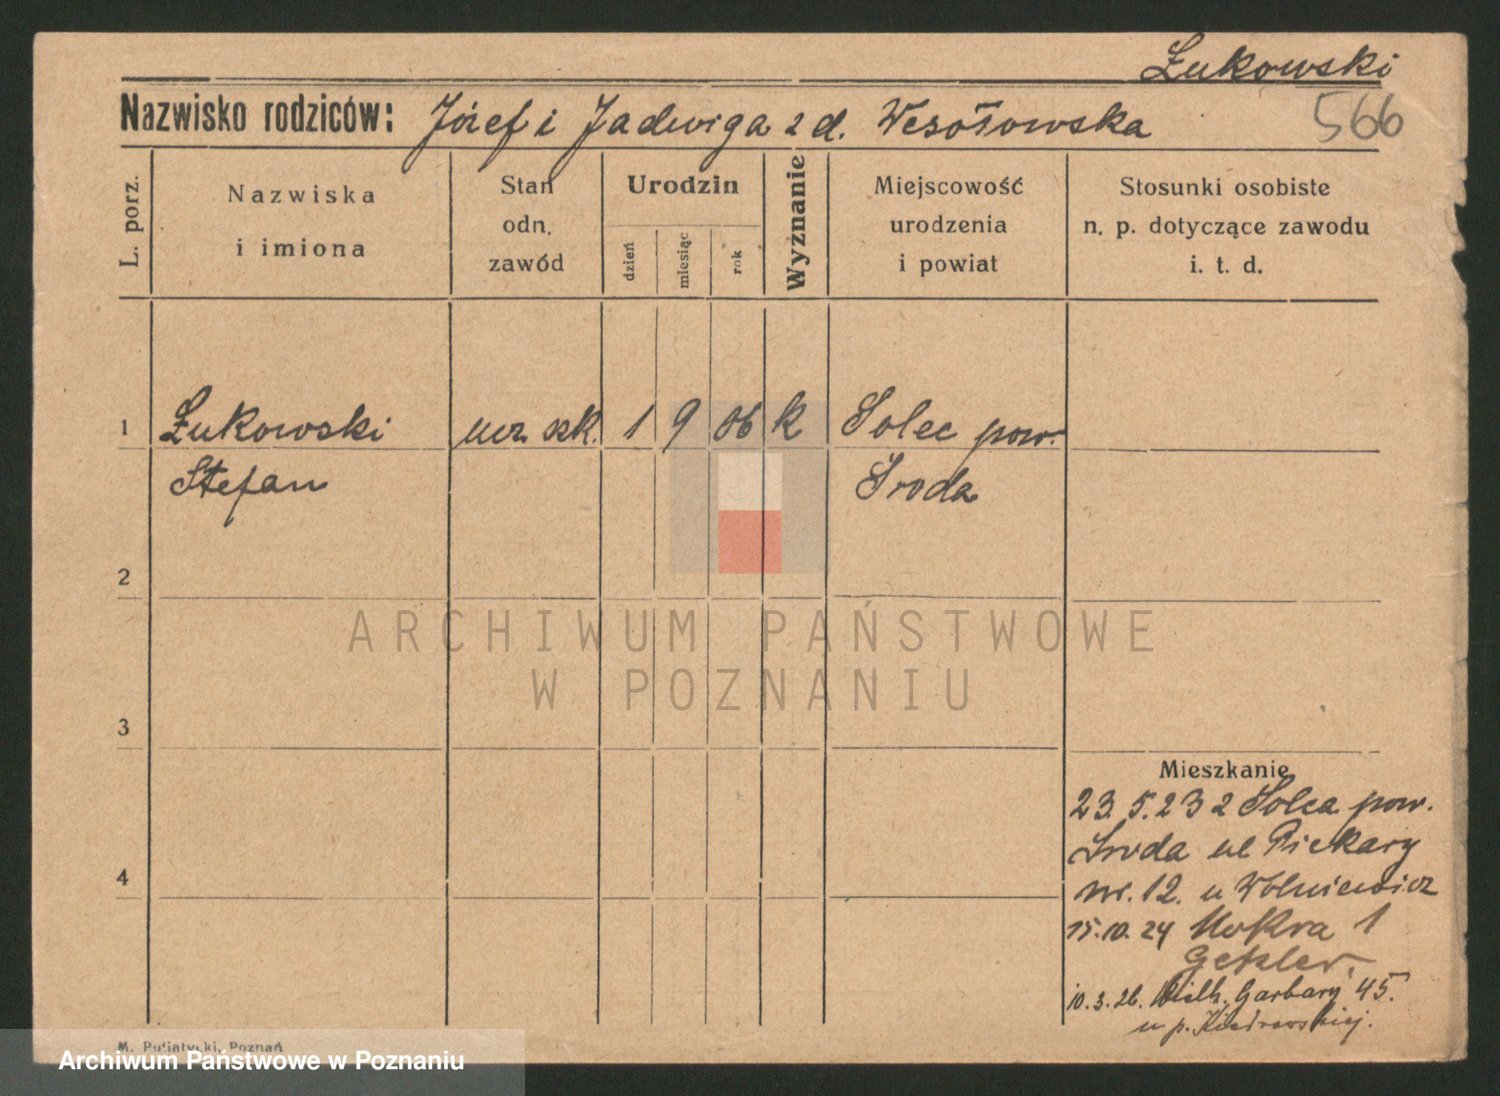 Łukowski
Nazwisko rodziców: Józef i Jadwiga z d. Wesołowska
566
L. porz.
Nazwiska
i imiona
Stan
odn.
zawód
Urodzin
dzień
miesiąc
rok
Wyznanie
Miejscowość
urodzenia
i powiat
Stosunki osobiste
n. p. dotyczące zawodu
i. t. d.
1 Łukowski ucz. szk. 1 9 06 k Solec pow.
Stefan Środa
2
ARCHIWUM PAŃSTWOWE
W POZNANIU
3
Mieszkanie
23.5.23 z Solca pow.
Środa ul Piekary
4
nr. 12. u Wolniewicz
15.10.24 Mokra 1
Getzler.
10.3.26. Garbary 45.
u p.
M. Putiatycki, Poznań
Archiwum Państwowe w Poznaniu